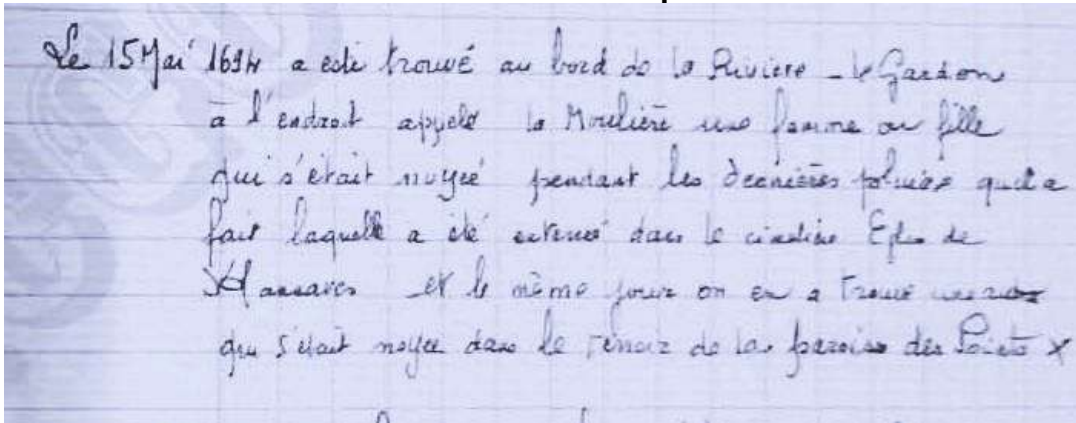 Le 15 Mai 1694 a esté trouvé au bord de la Riviere - le Gardon
à l'endroit appelé la Moulière une femme ou fille
qui s'était noyée pendant les dernières pluies qu'il a
fait laquelle a été enterré dans le cimetière de
et le même jour on en a trouvé
qui s'était noyée dans le de la paroisse des